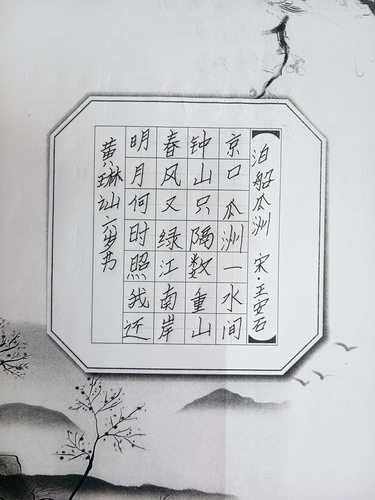 泊船瓜洲 宋·王安石
京口瓜洲一水间
钟山只隔数重山
春风又绿江南岸
明月何时照我还
黄琳汕六岁书